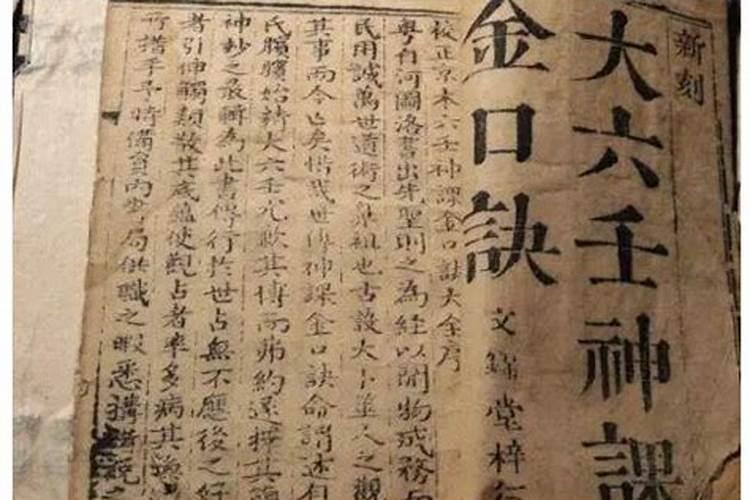 新刻
大六壬神課
金口訣
文錦堂梓行
校正京本六壬神課金口訣大全序
粵自河圖洛書出先聖則之為經以開物成務
民用誠萬世道術之鼻祖也古設大卜筮人之觀
其事而今亡矣惜哉世傳神課金口訣命謂述自
氏臏始詩大六壬尤歎其博而弗約遂擇其
神妙之最輯為此書傳行於世占無不應後之好
者引伸觸類散其底蘊使觀占者率多病其
所措手予時備員內步局供職之暇悉搆諸說